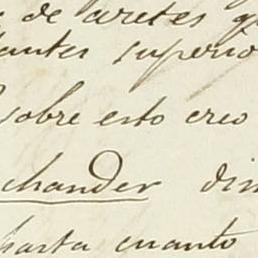 de aretes
antes superio
sobre esto creo
chander din
hasta cuanto